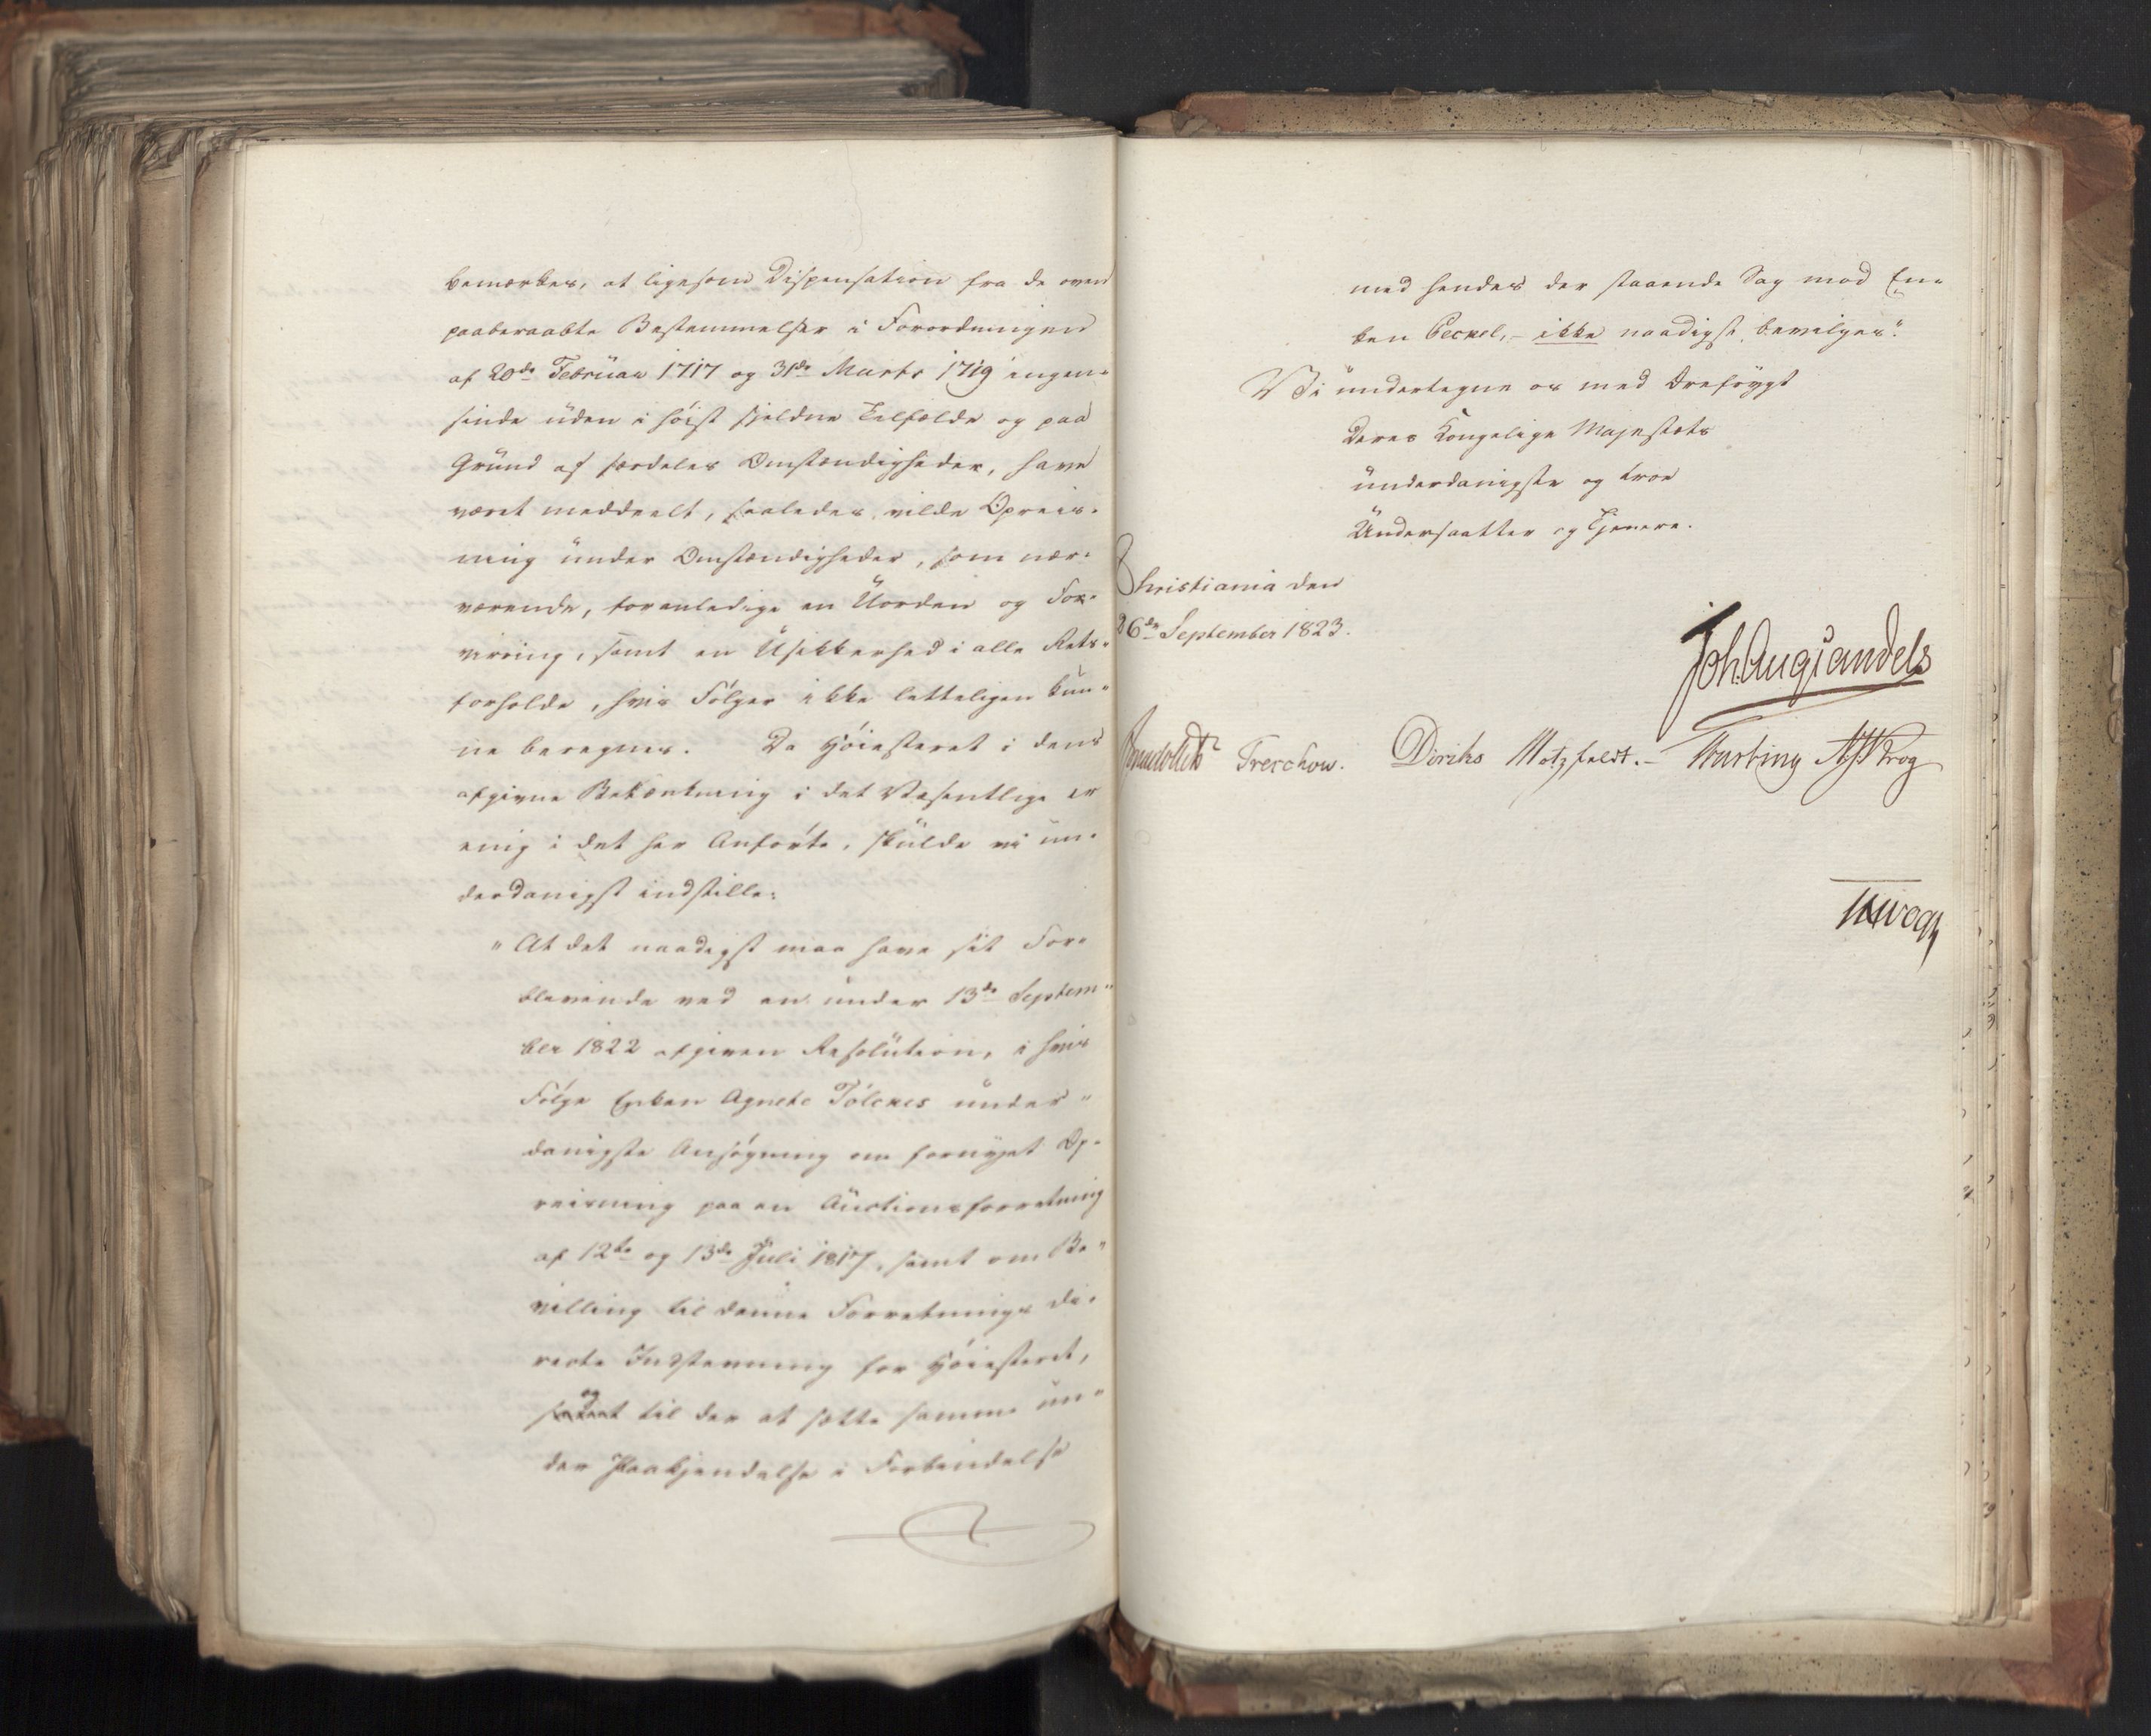 bemærkes, at ligesom Dispensation fra de oven
paaberaabte Bestemmelser i Forordningen
af 20de Februar 1717 og 31de Marts 1719 ingen-
sinde uden i høist sjeldne Tilfælde og paa
Grund af særdeles Omstændigheder, have
været meddeelt, saaledes vilde Opreis-
ning under Omstændigheder, som nær-
værende, foranledige en Uorden og For-
virring, samt en Usikkerhed i alle Rets-
forholde, hvis Følger ikke letteligen kun-
ne beregnes. Da Høiesteret i dens
afgivne Betænkning i det Væsentlige er
enig i det her Anførte, skulde vi un-
derdanigst indstille:
"At det naadigst maa have sit For-
blivende ved en under 13de Septem-
ber 1822 afgiven Resolution, i hvis
Følge Enken Agnete Tölches under-
danigste Ansøgning om fornyet Op-
reisning paa en Auctionsforretning
af 12te og 13de Juli 1817, samt om Be-
villing til denne Forretnings di-
recte Indstevning for Høiesteret,
og til der at sætte samme un-
der Paakjendelse i Forbindelse
med hendes der staaende Sag mod En-
ken Peckel, - ikke naadigst bevilges".
Vi undertegne os med Ærefrygt
Deres Kongelige Majestæts
underdanigste og troe
Undersaatter og Tjenere.
Christiania den
26de September 1823.
Joh. Aug. Sandels
Treschow. Diriks Motzfeldt. - Fasting Krog
Vogt